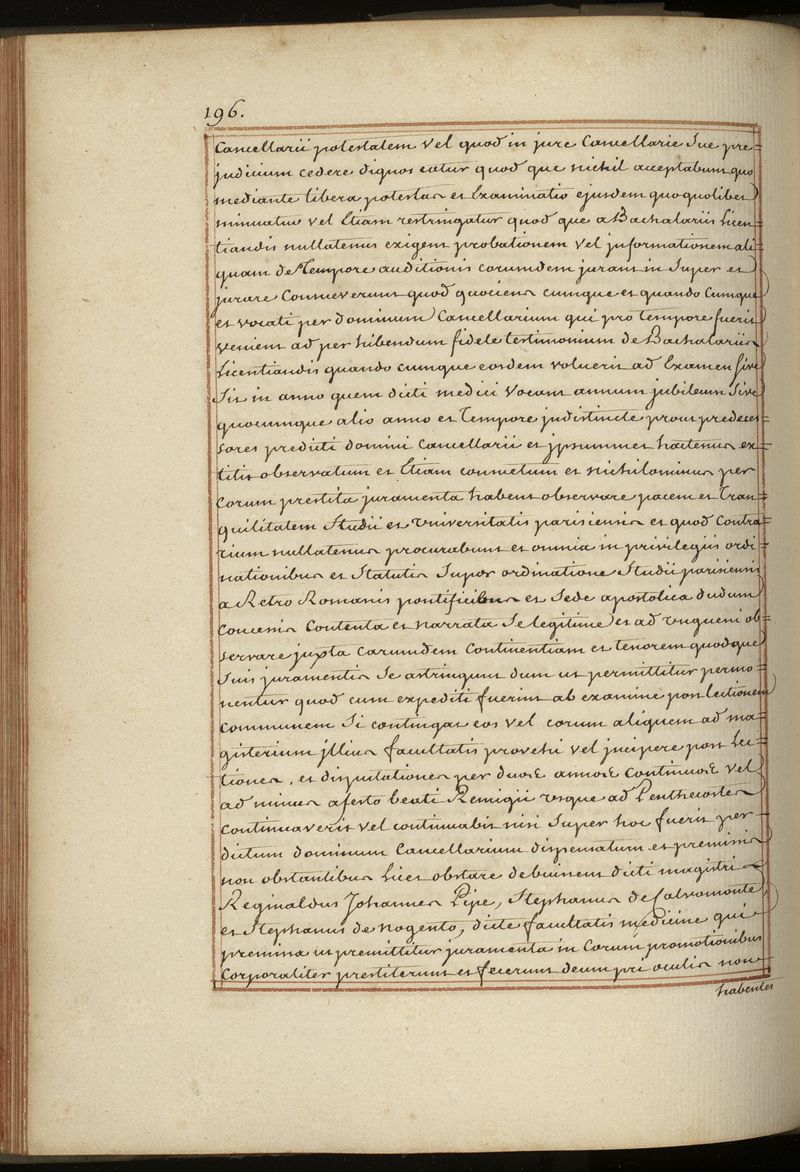 196.
Cancellarii potestatem vel quod in jure Cancellarie sue pre=
judicium cedere dignos catur quod que nichil acceptabunt quo
mediante libera potestas et Examinatio ejusdem quoquolibet
minuatur vel Etiam restringatur quod que a Bachalariis Licen=
tiandis nullatenus exigent probationem vel jnformationem ali=
quam de Tempore auditionis eorumdem jurant in super et
jurare Consueverunt quod quociens cumque et quando Cumque
et vocati per dominum Cancellarium qui pro tempore fuerit
venient ad per hibendum fidele testimonium de Bachalariis
Licentiandis quando cumque eosdem voluerit ad Examen sive
sit in anno quem dicti medici vocant annum jubileum sive
quocumque alio anno et Tempore jndistincte prout predeces
sores predicti domini Cancellarii et jpsummet hactenus ex=
titit observatum et Etiam consuetum et nichilominus per
eorum prestita juramenta habent observare pacem et Tran=
quilitatem Studii et Universitatis parisiensis et quod Contra=
rium nullatenus procurabunt et omnia in privilegiis ordi=
nationibus et Statutis super ordinatione Studii parisiensis
a Retro Romanis pontificibus et Sede apostolica dudum
Concessis Contenta et narrata se legitime et ad unguem ob=
servare juxta earumdem Continentiam et tenorem quodque
suis juramentis se astringunt dum ut permittitur permo=
nentur quod cum expediti fuerint ab examine post lectionem
communem si contingat eos vel eorum aliquem ad ma=
gisterium jllius facultatis provehi vel jncipere post Lec=
tiones, et disputationes per duos annos continuos vel
ad minus a festo beati Remigii usque ad Penthecostes
continuaverit vel continuabit nisi super hoc fuerit per
dictum dominum Cancellarium dispensatum et premissis
non obstantibus licet obstare debuissent dicti magistri
Reginaldus Johannes Pipe, Stephanus de Calvomonte,
et Stephanus de nogento, dicte facultatis medicine qui
premissa ut premittitur juramenta in eorum promotionibus
Corporaliter prestiterunt et fecerunt deum pri oculis non=
habentes